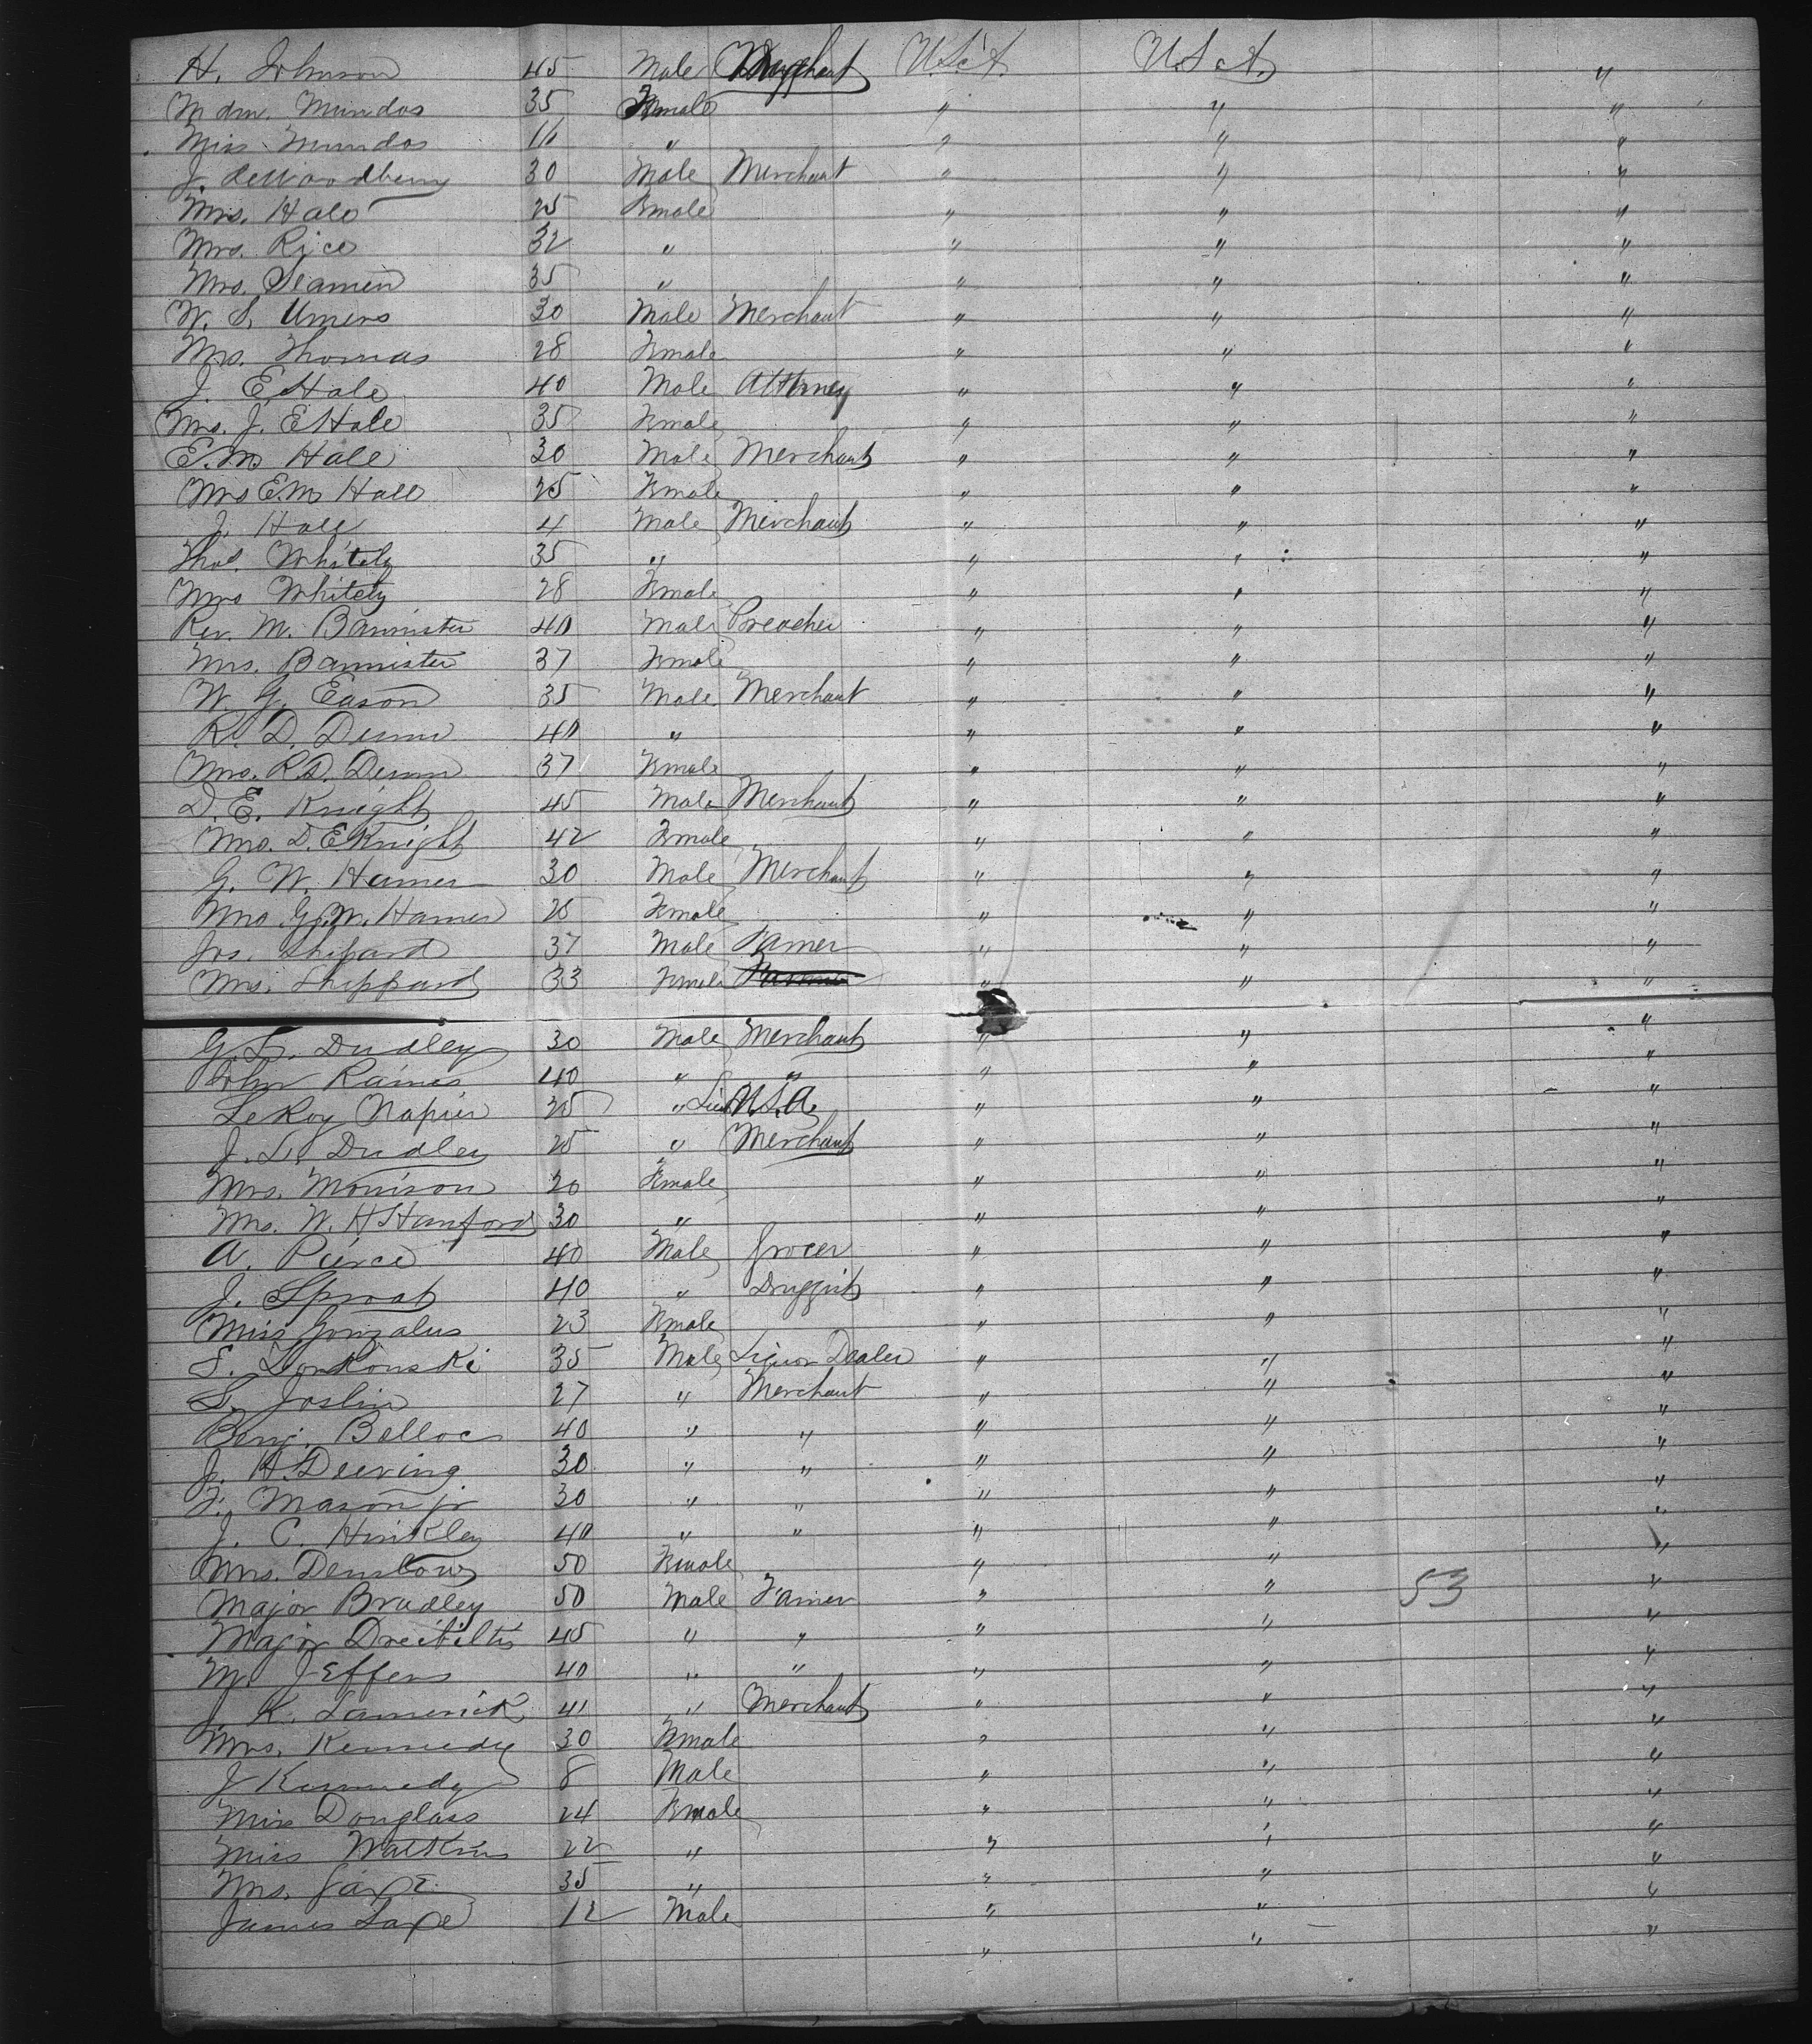 H. Johnson 45 Male Merchant U.S.A. U.S.A. "
Mdm. Mundos 35 Female " " "
Miss Mundos 16 " " " "
J. DeWoodberry 30 Male Merchant " " "
Mrs. Hale 25 Female " " "
Mrs. Rice 32 " " " "
Mrs. Seamen 35 " " " "
W. S. Umers 30 Male Merchant " " "
Mrs. Thomas 28 Female " " "
J. E Hale 40 Male Attorney " " "
Mrs. J. E Hale 35 Female " " "
E. M Hale 30 Male Merchant " " "
Mrs E. M Hale 25 Female " " "
J. Hale 4 Male Merchant " " "
Thos. Whitely 35 " " " "
Mrs Whitely 28 Female " " "
Rev. M. Bannister 40 Male Preacher " " "
Mrs. Bannister 37 Female " " "
W. G. Eason 35 Male Merchant " " "
R. D. Dunn 40 " " " "
Mrs. R. D. Dunn 37 Female " " "
D. E. Knight 45 Male Merchant " " "
Mrs. D. E Knight 42 Female " " "
G. W. Hamer 30 Male Merchant " " "
Mrs. G. W. Hamer 25 Female " " "
Jos. Shipard 37 Male Famer " " "
Mrs. Shippard 33 Female " " "
G. L. Dudley 30 Male Merchant " " "
John Raines 40 " " " " "
LeRoy Napier 25 " Lieu U.S.A. " " "
J. L. Dudley 25 " Merchant " " "
Mrs. Morrison 20 Female " " "
Mrs. W. H Hanford 30 " " " "
A. Pierce 40 Male Grocer " " "
J. Sproat 40 " Druggist " " "
Miss Gonzalus 23 Female " " "
S. Donkouski 35 Male Liquor Dealer " " "
S. Joslin 27 " Merchant " " "
Benj. Belloc 40 " " " " "
J. H. Deering 30 " " " " "
F. Mason jr 30 " " " " "
J. C. Hinkley 40 " " " " "
Mrs. Denslow 50 Female " " "
Major Bradley 50 Male Famer " " 53 "
Major 45 " " " " "
M. Jeffers 40 " " " " "
J K. Lamerick 41 " Merchant " " "
Mrs. Kennedy 30 Female " " "
J Kennedy 8 Male " " "
Miss Douglass 24 Female " " "
Miss Watkins 22 " " " "
Mrs. Saxe 35 " " " "
James Saxe 12 Male " " "
" " "